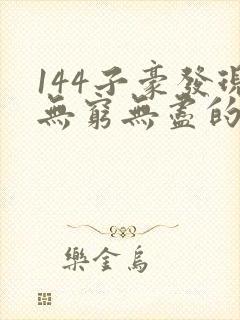 144子豪發現
無窮無盡的
樂金烏